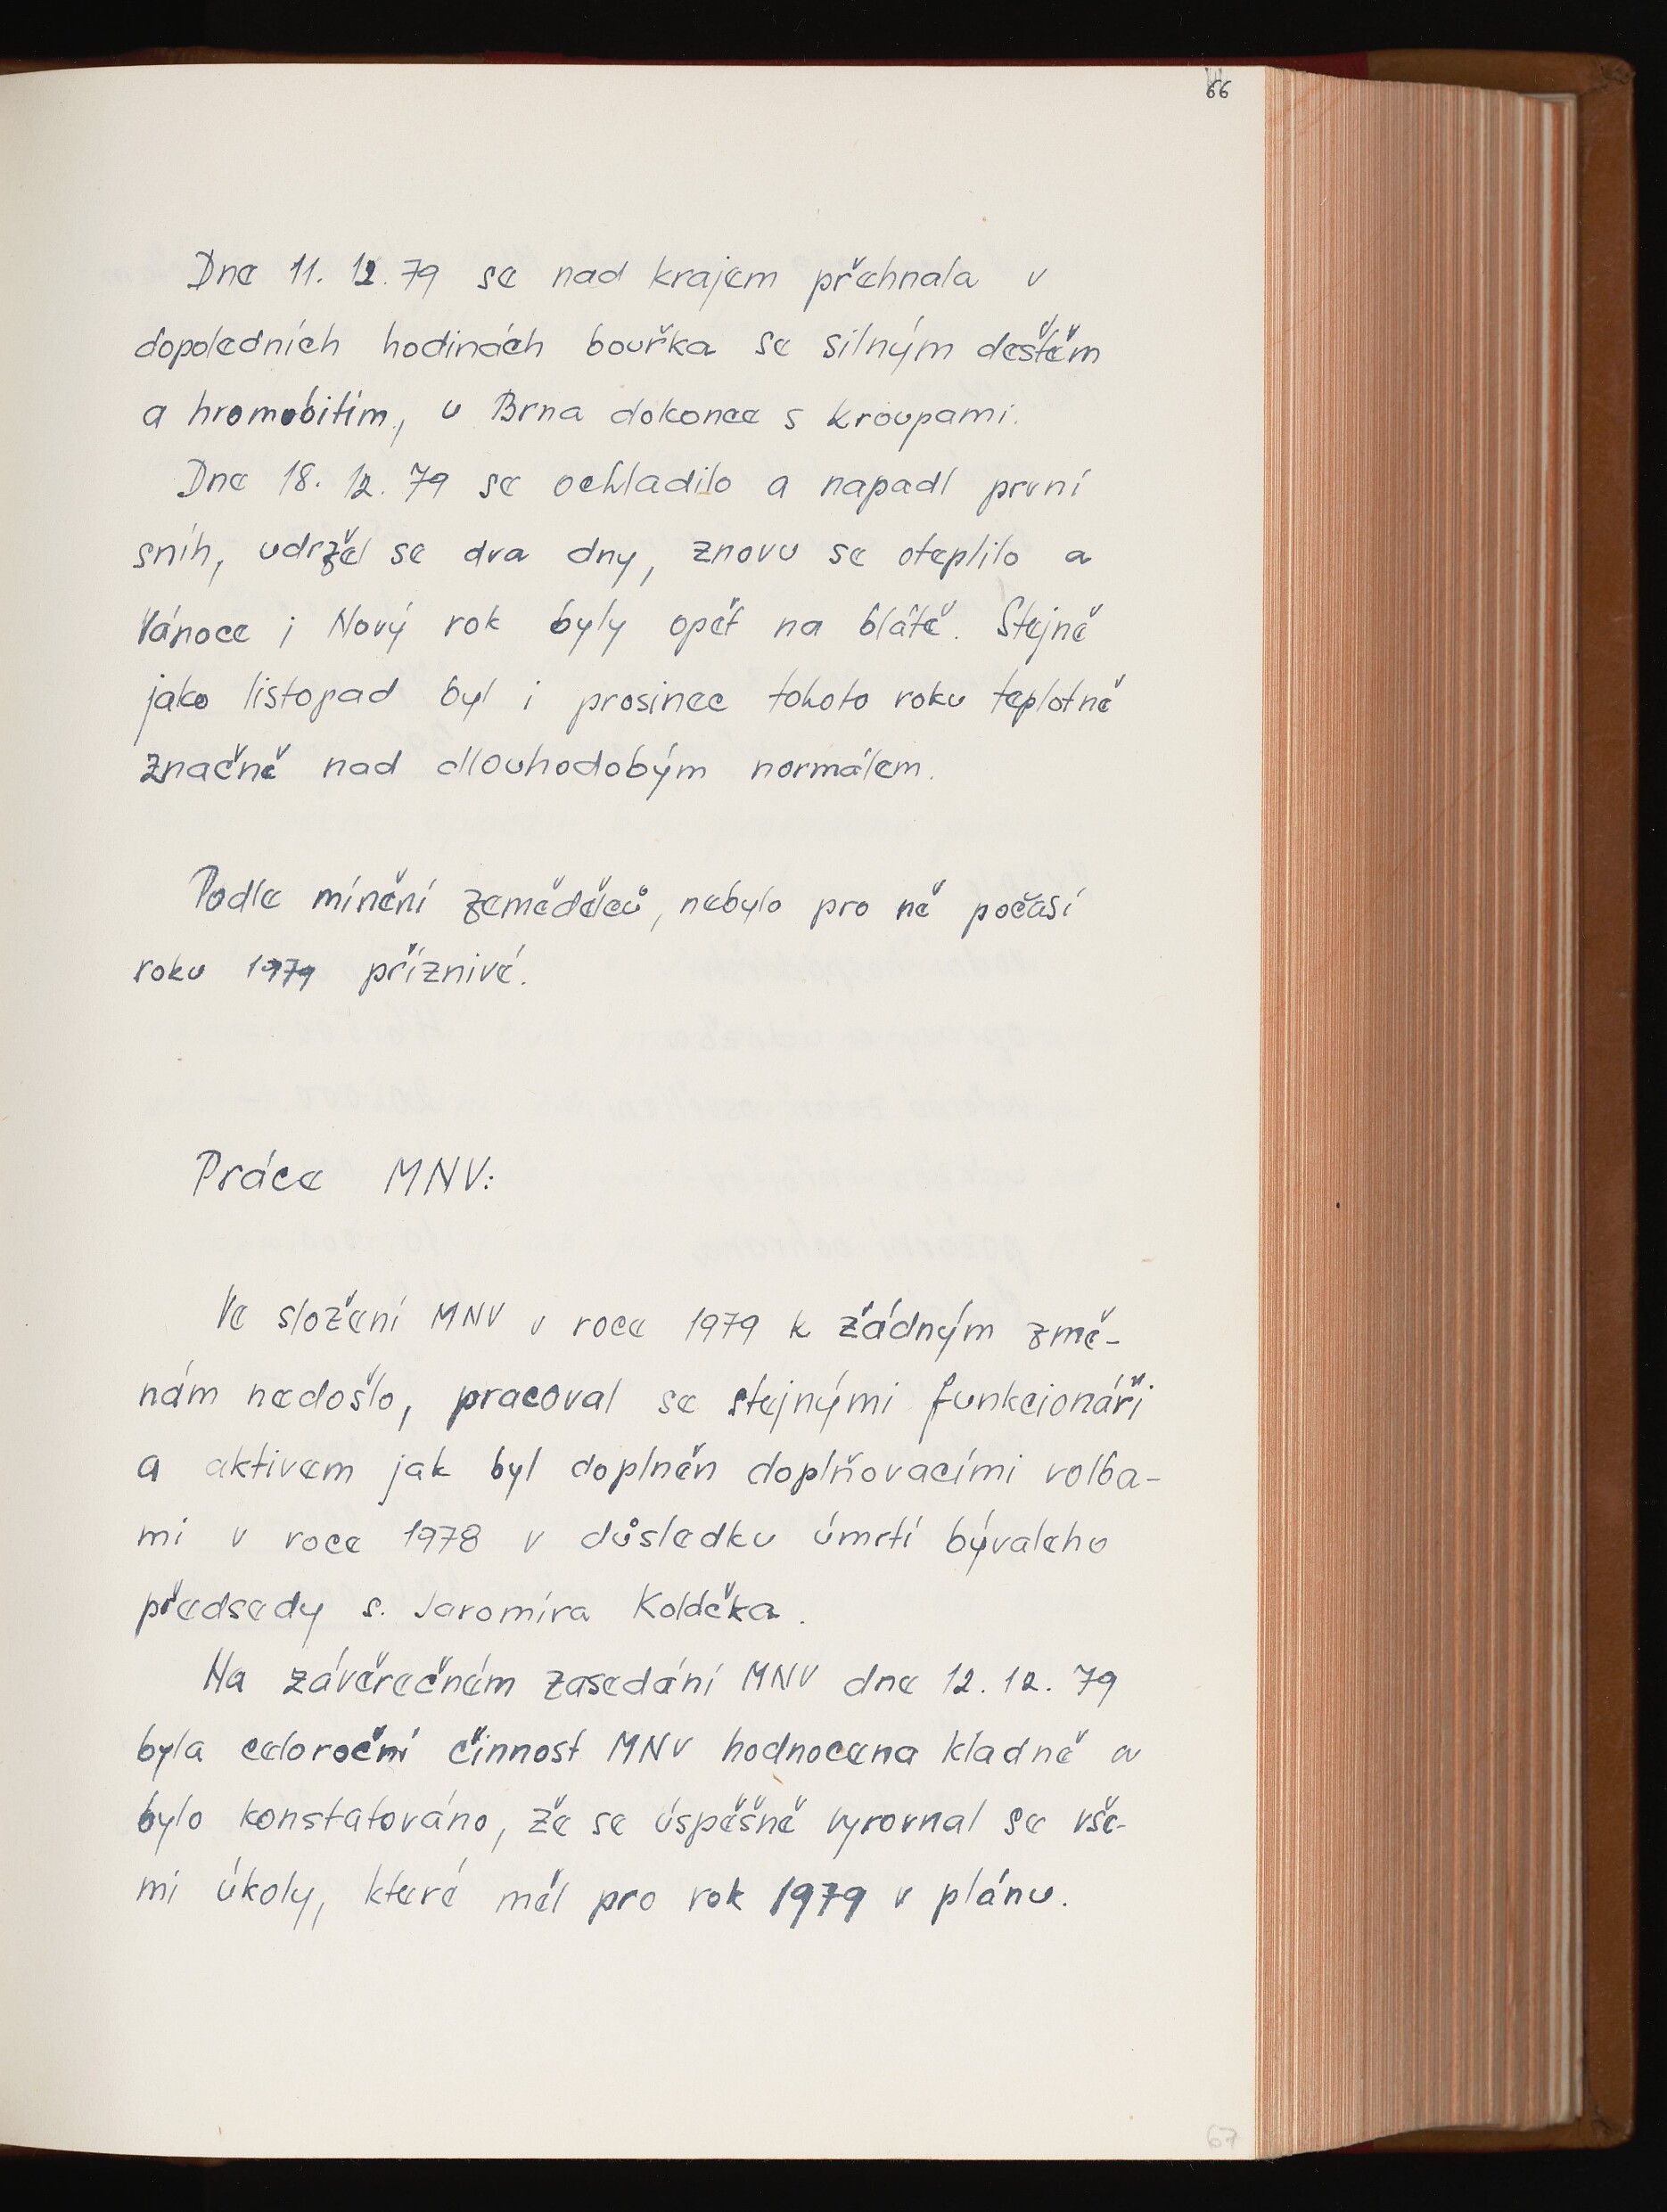 66
Dne 11. 12. 79 se nad krajem přehnala v
dopoledních hodinách bouřka se silným deštěm
a hromobitím, u Brna dokonce s kroupami.
Dne 18. 12. 79 se ochladilo a napadl první
sníh, udržel se dva dny, znovu se oteplilo a
Vánoce i Nový rok byly opět na blátě. Stejně
jako listopad byl i prosinec tohoto roku teplotně
značně nad dlouhodobým normálem.
Podle mínění zemědělců, nebylo pro ně počasí
roku 1979 příznivé.
Práce MNV:
Ve složení MNV v roce 1979 k žádným změ-
nám nedošlo, pracoval se stejnými funkcionáři
a aktivem jak byl doplněn doplňovacími volba-
mi v roce 1978 v důsledku úmrtí bývaleho
předsedy s. Jaromíra Kolděka.
Na závěrečném zasedání MNV dne 12. 12. 79
byla celoroční činnost MNV hodnocena kladně a
bylo konstatováno, že se úspěšně vyrovnal se vše-
mi úkoly, které měl pro rok 1979 v plánu.
67